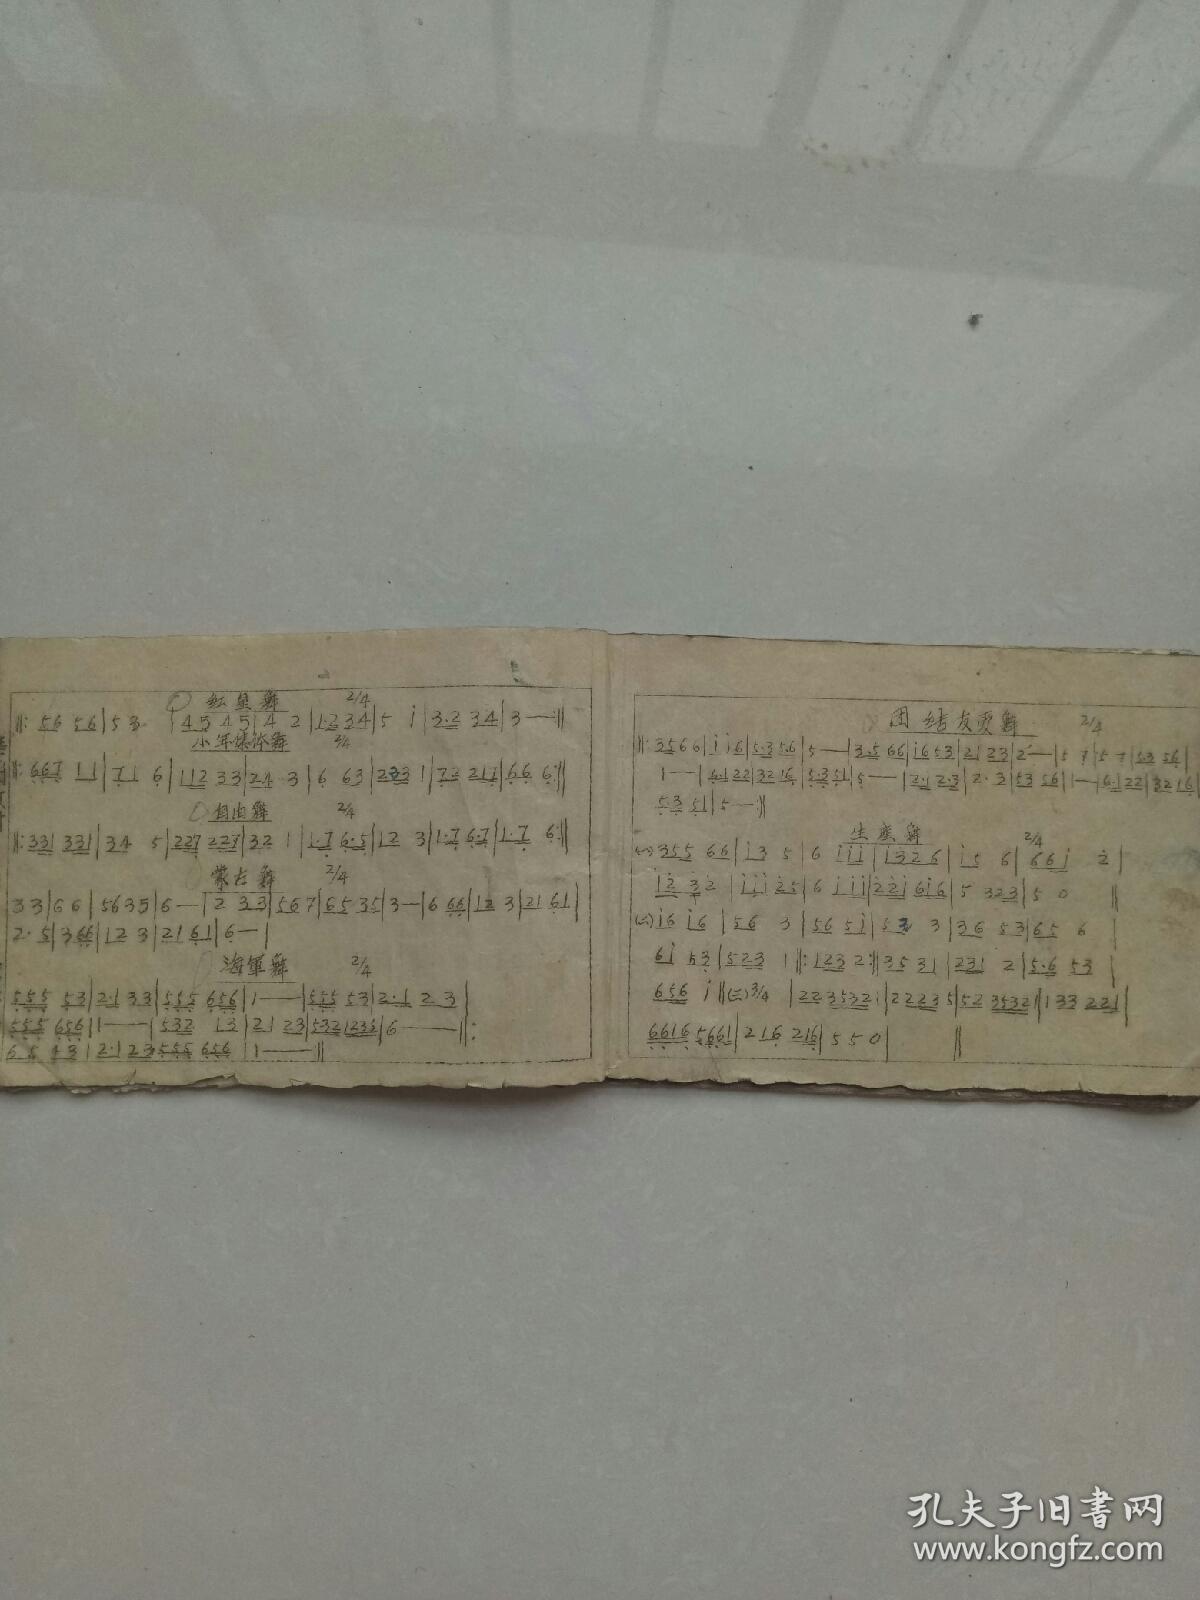 红星舞 2/4
‖: 56 56 | 53 | 45 45 | 4 2 | 1·2 34 | 5 i | 3·2 34 | 3 — :‖
少年集体舞 2/4
‖: 667 11 | 71 6 | 112 33 | 24 3 | 6 63 | 223 1 | 72 217 | 66 6 :‖
自由舞 2/4
‖: 331 331 | 34 5 | 227 227 | 32 1 | 1·7 6·5 | 12 3 | 1·7 6·7 | 1·7 6 :‖
蒙古舞 2/4
33 | 66 | 5635 | 6 — | 2 33 | 567 | 65 35 | 3 — | 6 66 | 12 3 | 21 61 |
2·5 | 366 | 12 3 | 21 61 | 6 — |
海軍舞 2/4
555 53 | 2·1 33 | 555 656 | 1 — | 555 53 | 2·1 23 |
555 656 | 1 — | 532 13 | 21 23 | 532 1235 | 6 — ‖:
65 43 | 2·1 23 555 656 | 1 — ‖
团结友爱舞 2/4
‖: 3566 | ii6 | 5·356 | 5 — | 3·5 66 | i653 | 21 23 | 2 — | 5 7 | 5 7 | 53 56 |
1 — | 61 22 | 32 16 | 5·3 51 | 5 — | 2·1 2·3 | 2·3 | 53 56 | 1 — | 61 22 | 32 16 |
5·3 51 | 5 — :‖
生产舞 2/4
㈠ 355 66 | i3 5 | 6 iii | i326 | i5 6 | 66i 2 |
i2 32 | iii 25 | 6 iii | 22i 6i6 | 5 323 | 5 0 ‖
㈡ i6 i6 | 56 3 | 56 5i | 52 3 | 36 53 | 65 6 |
6i 53 | 523 1 ‖: 123 2 :‖ 35 31 | 231 2 | 5·6 53 |
656 i ‖ ㈢ 3/4 | 223532 | 22235 | 52 3532 | 133 221 |
6616 5661 | 216 216 | 550 | ‖
孔夫子旧书网
www.kongfz.com